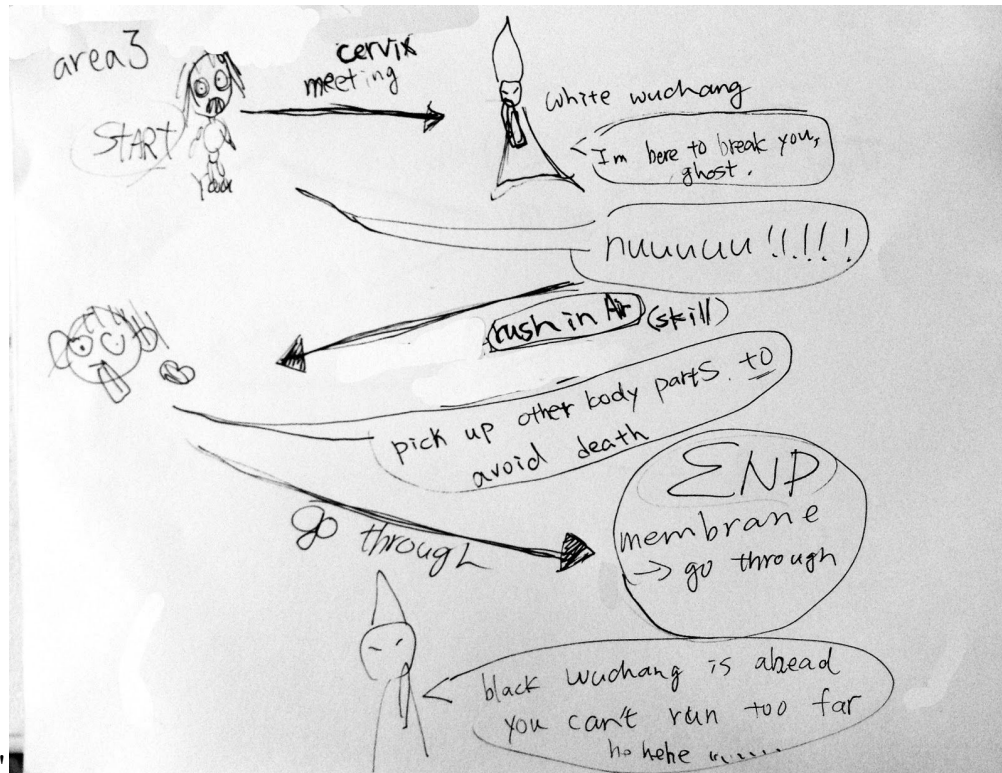 area3
START
cervix
meeting
white wuchang
I'm here to break you,
ghost.
nuuuuu!!.!!!
rush in Air (skill)
pick up other body parts. to
avoid death
go through
END
membrane
→ go through
black wuchang is ahead
you can't run too far
hehehe ......